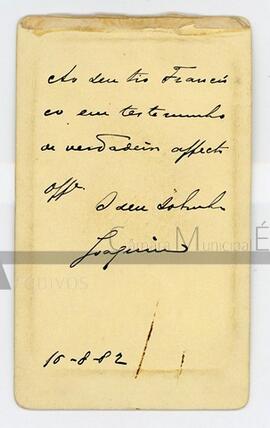 Ao seu tio Francis
co em testemunho
de verdadeiro affecto
Offe
O seu Sobrinho
Joaquim
Câmara Municipal É
Arquivos
16-8-82